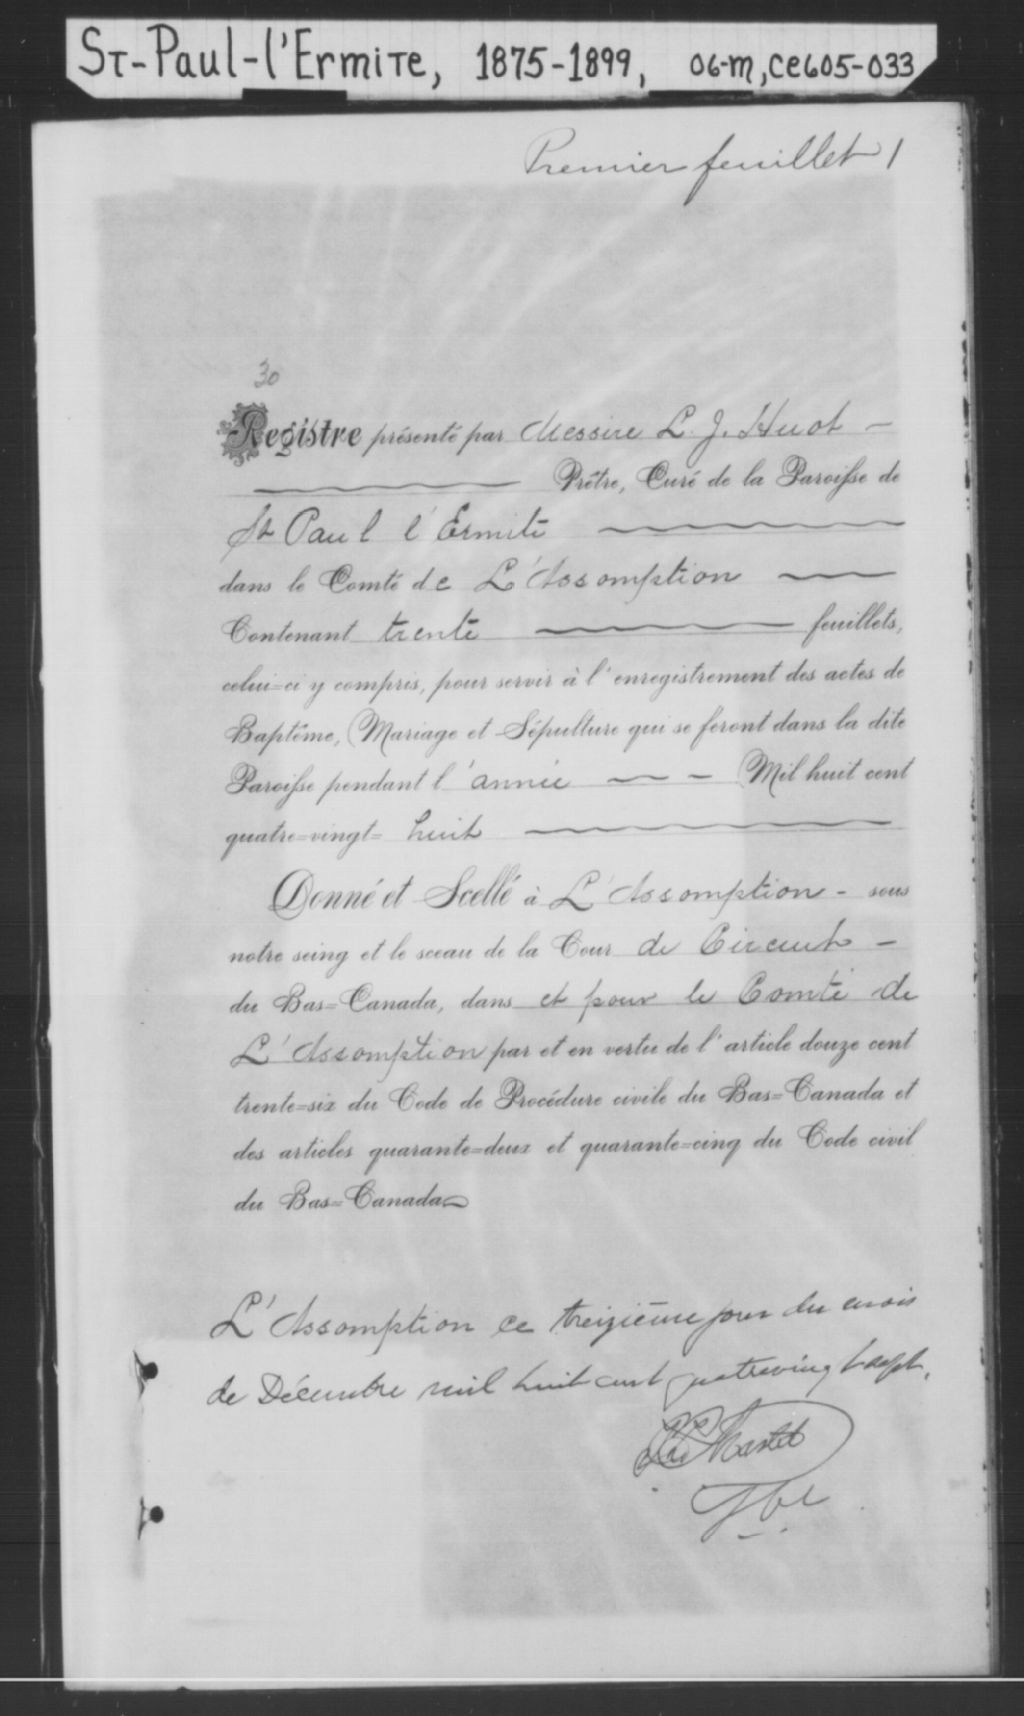 St-Paul-l'Ermite, 1875-1899, 06-M, CE605-033
Premier feuillet 1
30
Registre présenté par Messire L. J. Huot
Prêtre, Curé de la Paroisse de
St Paul l'Ermite
dans le Comté de L'Assomption
Contenant trente feuillets,
celui=ci y compris, pour servir à l'enregistrement des actes de
Baptême, Mariage et Sépulture qui se feront dans la dite
Paroisse pendant l'année Mil huit cent
quatre=vingt= huit
Donné et Scellé à L'Assomption - sous
notre seing et le sceau de la Cour de Circuit -
du Bas=Canada, dans et pour le Comté de
L'Assomption par et en vertu de l'article douze cent
trente=six du Code de Procédure civile du Bas=Canada et
des articles quarante=deux et quarante=cinq du Code civil
du Bas=Canada
L'Assomption ce treizième jour du mois
de Décembre mil huit cent quatrevingt sept.